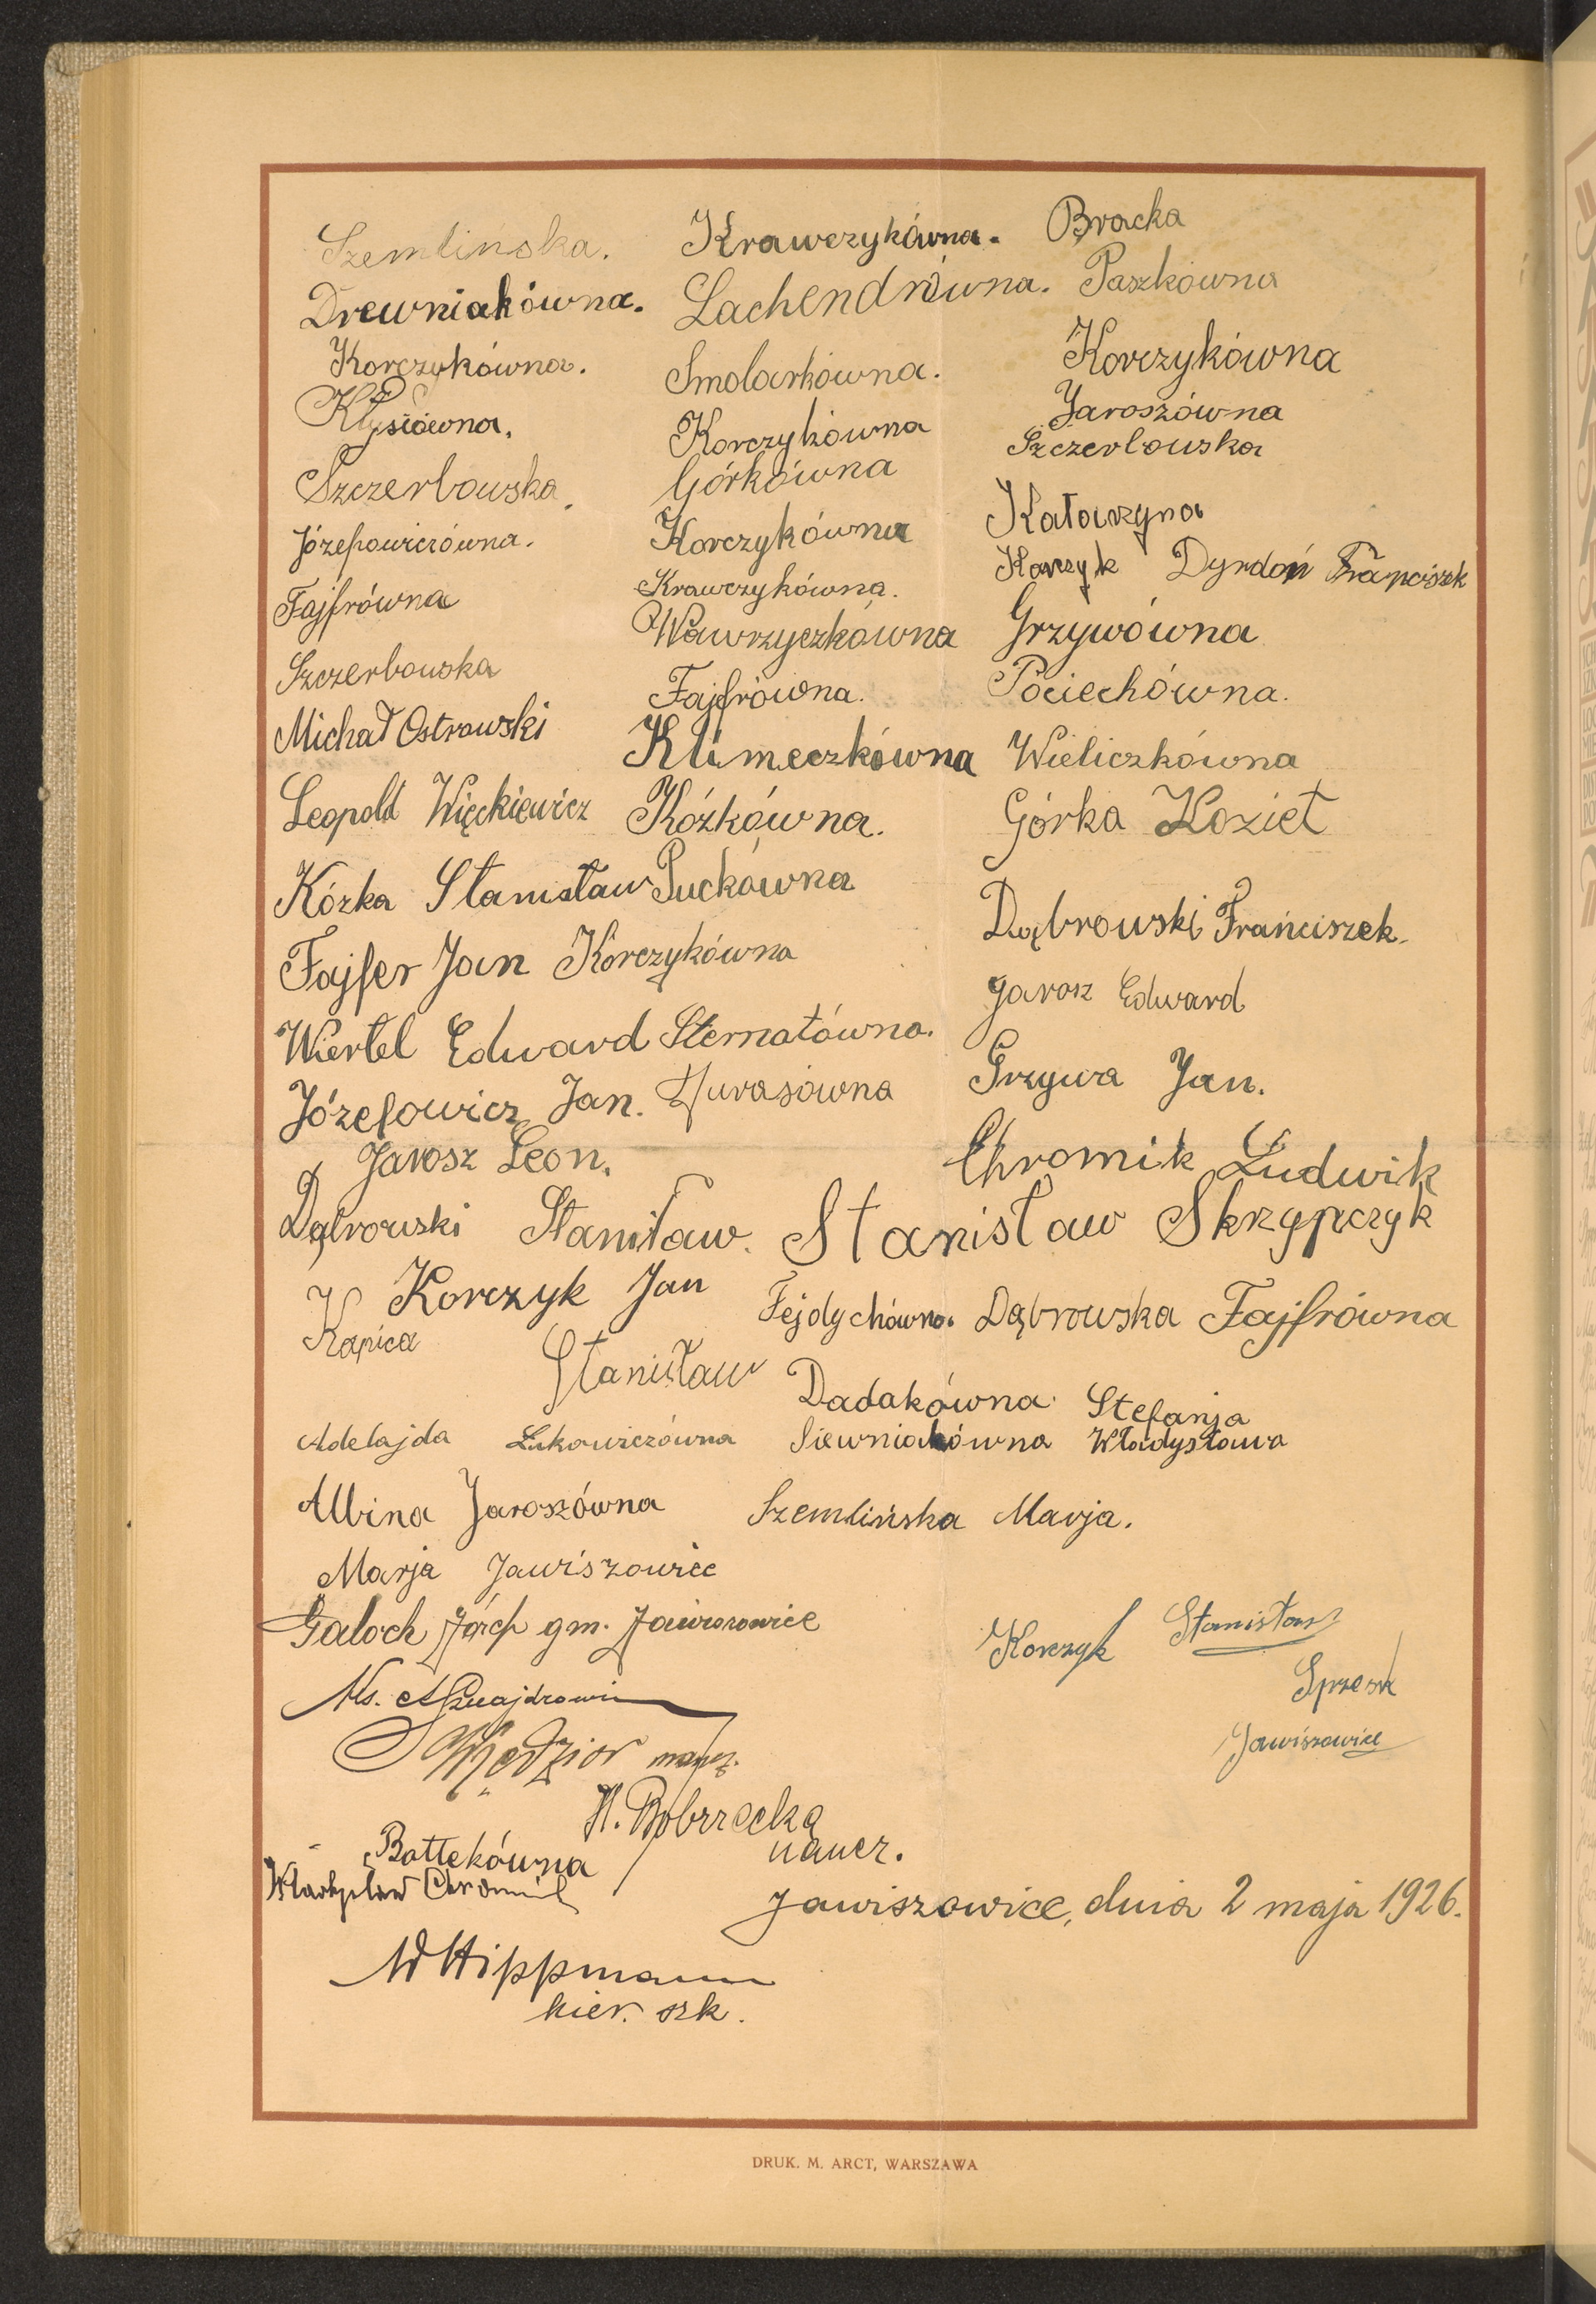 Szemlińska. Krawczykówna. Bracka
Drewniakówna. Lachendrówna. Paszkówna
Korczykówna. Smolarkówna. Korczykówna
Kłysiówna. Korczykówna Jaroszówna
Szczerbowska. Górkówna Szczerbowska
Józefowiczówna. Korczykówna Katarzyna
Fajfrówna Krawczykówna. Korczyk Dyrdoń Franciszek
Szczerbowska Wawrzyczkówna Grzywówna
Michał Ostrowski Fajfrówna. Pociechówna.
Klimeczkówna Wieliczkówna
Leopold Więckiewicz Kózkówna. Górka Kozieł
Kózka Stanisław Puckówna Dąbrowski Franciszek.
Fajfer Jan Korczykówna Jarosz Edward
Wiertel Edward Sternatówna. Grzywa Jan.
Józefowicz Jan. Jurasówna
Jarosz Leon. Chromik Ludwik
Dąbrowski Stanisław. Stanisław Skrzypczyk
Korczyk Jan Fejdychówna. Dąbrowska Fajfrówna
Kapica Stanisław Dadakówna Stefanja
Adelajda Łukowiczówna Siewniakówna Władysława
Albina Jaroszówna Szemlińska Marja.
Marja Jawiszowice
Galoch Józef gm. Jawiszowice
Korczyk Stanisław
Ks.
Jawiszowice
H. Bobrzecka
naucz.
Bottekówna
Władysław Chromik
Jawiszowice, dnia 2 maja 1926.
W Hippmann
kier. szk.
DRUK. M. ARCT, WARSZAWA